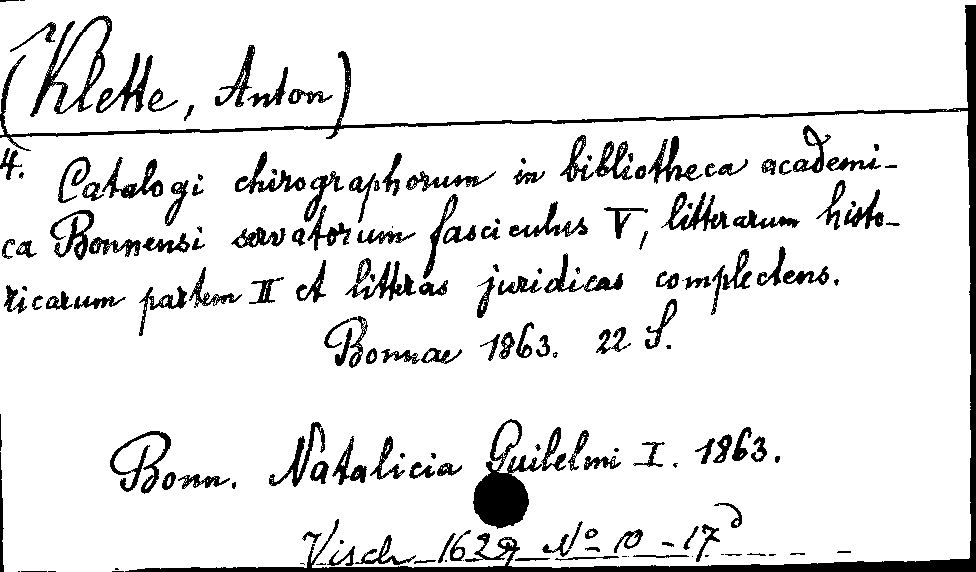 (Klette, Anton)
4. Catalogi chirographorum in bibliotheca academi-
ca Bonnensi servatorum fasciculus V, litterarum histo-
ricarum partem II et litteras juridicas complectens.
Bonnae 1863. 22 S.
Bonn. Natalicia Guilelmi I. 1863.
Visch 1629 No 10-17